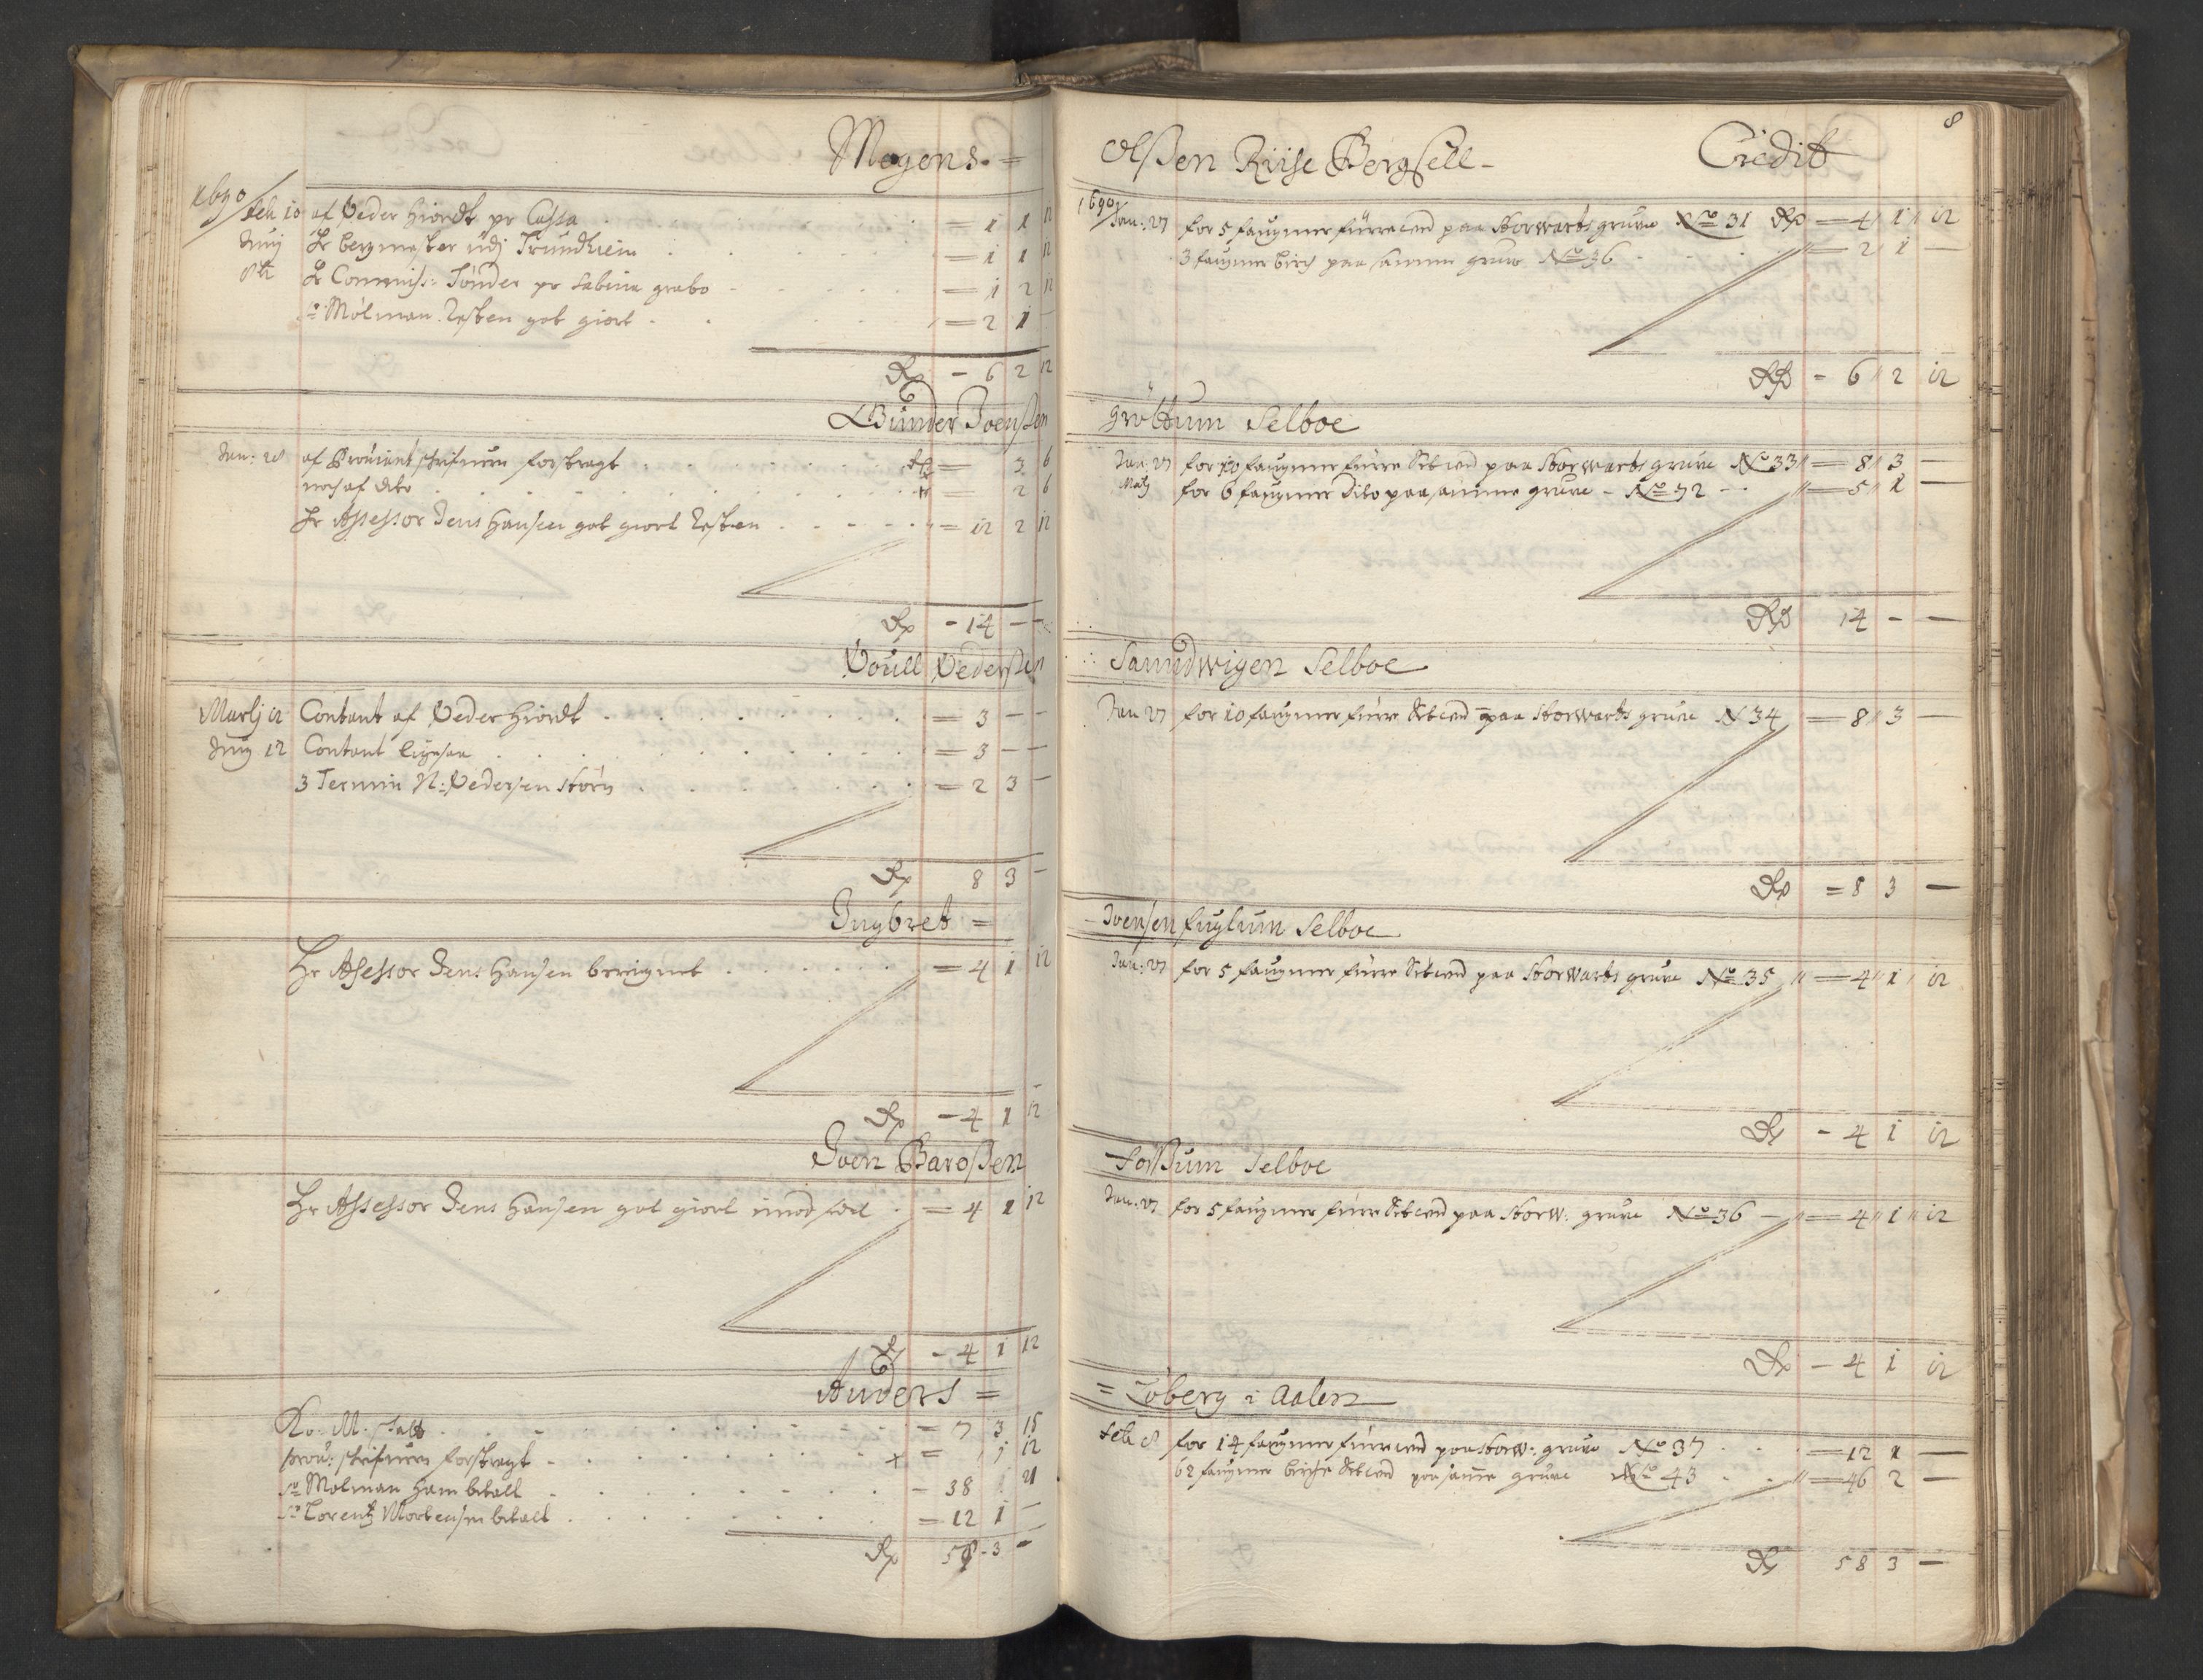 Mogens =
1690/
Feb 10 af Peder Hiordt pr Cassa = 1 1 12
Hr bergmester udj Trundhiem = 1 1 12
Hr Commiss: Tønder pr Sabina grabo = 1 2 12
Sr Mølman Resten got giort = 2 1 –
Rdr – 6 2 12
Gunder Joenssen
Jan: 28 af Proviantskrifueren forstragt = 3 6
noch af dito = 2 6
Hr Assessor Jens Hansen got giort Resten = 12 2 12
Rdr – 14 – –
Poull Pederssen
Martj 12 Contant af Peder Hiordt = 3 – –
12 Contant ligesaa = 3 – –
3 Termin N: Pedersen Støren = 2 3 –
Rdr 8 3 –
Ingbret =
Hr Assessor Jens Hansen = 4 1 12
Rdr – 4 1 12
Joen Baroßen
Hr Assessor Jens Hansen got giort imod = 4 1 12
Rdr – 4 1 12
Anders =
= 7 3 15
prov: skrifueren forstragt × = 1 12
Sr Mølman ham betalt – 38 21
Sr Lorentz Mortensen betalt = 12 1 –
Rdr 58 – 3 –
8
Olßen Riise Bergsell – Credit
1690/
Jan: 27 for 5 faugner fürreved paa Storwarts gruve No 31 Rdr = 4 1 12
3 faugner birch paa samme gruve No 36 = 2 1 –
Rdr – 6 2 12
Grøttum Selboe
Jan: 27 for 10 faugner fürre Setved paa Storwarts gruve No 33 = 8 3 –
Martj for 6 faugner dito paa samme gruve – No 72 = 5 1 –
Rdr 14 – –
Sanndwigen Selboe
Jan 27 for 10 faugner fürre Setved paa Storwarts gruve N 34 = 8 3 –
Rdr = 8 3 –
– Joensen fuglum Selboe
Jan: 27 for 5 faugner fürre Setved paa Storwarts gruve No 35 = 4 1 12
Rdr – 4 1 12
Foßum Selboe
Jan: 27 for 5 faugner fürre Setved paa Storw: gruve No 36 – = 4 1 12
Rdr – 4 1 12
= i Aalen
Feb 8 for 14 faugner fürreved paa Storw: gruve No 37 = 12 1 –
62 faugner birche Setved paa samme gruve No 43 = 46 2 –
Rdr 58 3 –